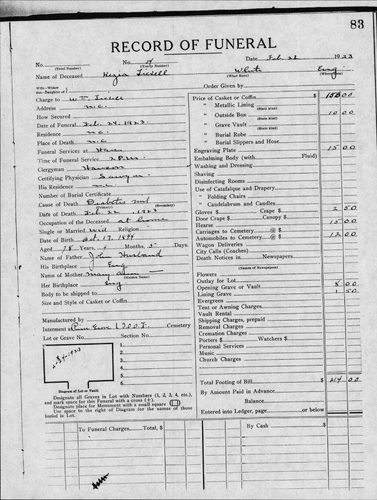 83
RECORD OF FUNERAL
No. No. 4 Date Feb 22 1923
(Total Number) (Yearly Number)
Name of Deceased Kezia White Eng
(What Race) (Where Born)
Order Given by
Charge to Wm.
Address N.C.
How Secured
Date of Funeral Feb. 24, 1923
Residence N.C.
Place of Death N.C.
Funeral Services at
Time of Funeral Service 2 P.M.
Clergyman
Certifying Physician
His Residence N.C.
Number of Burial Certificate
Cause of Death Diabetes (Secondary)
Date of Death Feb 22 1923
Occupation of the Deceased at home
Single or Married Wid Religion
Date of Birth
Aged 78 Years 4 Months 5 Days
Name of Father John Husband
His Birthplace Eng
Name of Mother Mary Ann (Maiden Name)
Her Birthplace Eng
Body to be shipped to
Size and Style of Casket or Coffin
Manufactured by
Interment I.O.O.F. Cemetery
Lot or Grave No. Section No.
1
2
3
4
5
6
7
2-24-1923
Diagram of Lot or Vault
Designate all Graves in Lot with Numbers (1, 2, 3, 4, etc.),
and mark place for this Funeral with a cross (+).
Designate place for Monument with a small square
Use space to the right of Diagram for the names of those
buried in Lot.
Price of Casket or Coffin $ 155 00
" Metallic Lining
(State Kind)
" Outside Box 10 00
(State Kind)
" Grave Vault
(State Kind)
" Burial Robe
(State Kind)
" Burial Slippers and Hose
Engraving Plate
Embalming Body (with Fluid) 15 00
Washing and Dressing
Shaving
Disinfecting Rooms
Use of Catafalque and Drapery
" Folding Chairs
" Candelabrum
Gloves $ Crape $ 2 50
Door Crape $ Canopy $
Hearse 15 00
Carriages to Cemetery @ $
Automobiles to Cemetery @ $ 12 00
Wagon Deliveries
City Calls (Coaches)
Death Notices in Newspapers
(Names of Newspapers)
Flowers
Outlay for Lot
Opening Grave or Vault 8 00
Lining Grave 1 50
Evergreen
Tent or Awning Charges
Vault Rental
Shipping Charges, prepaid
Removal Charges
Cremation Charges
Porters $ Watchers $
Personal Services
Music
Church Charges
Total Footing of Bill $ 219 00
By Amount Paid in Advance
Balance
Entered into Ledger, page or below
To Funeral Charges, Total $ By Cash $